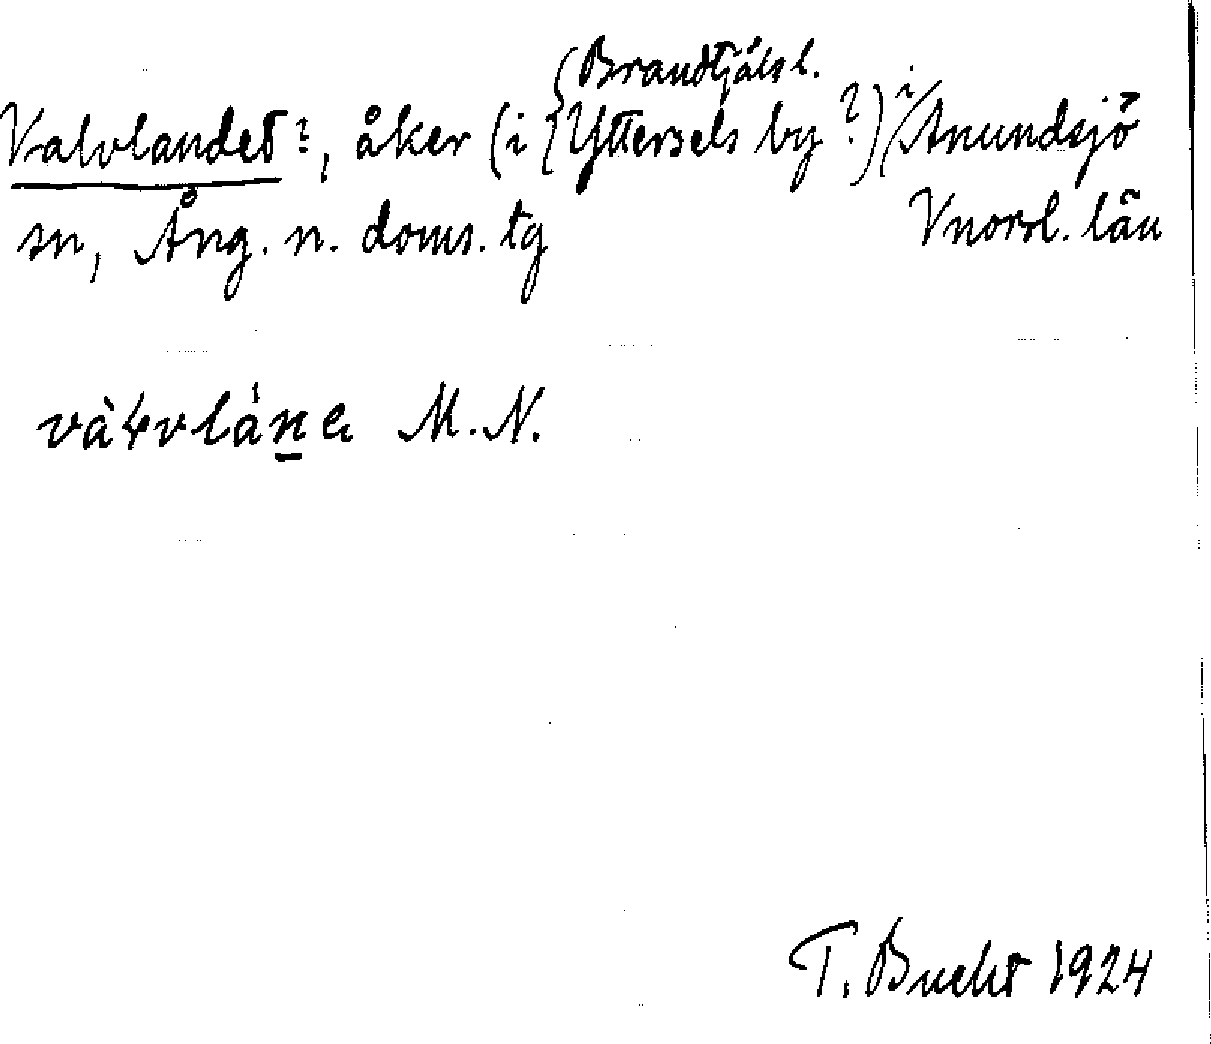 {Brandtjäls l.
Valvlandet?, åker (i {Yttersels by?) i Anundsjö
sn, Ång. n. doms. tg Vnorrl. län
M. N.
T. Bucht 1924